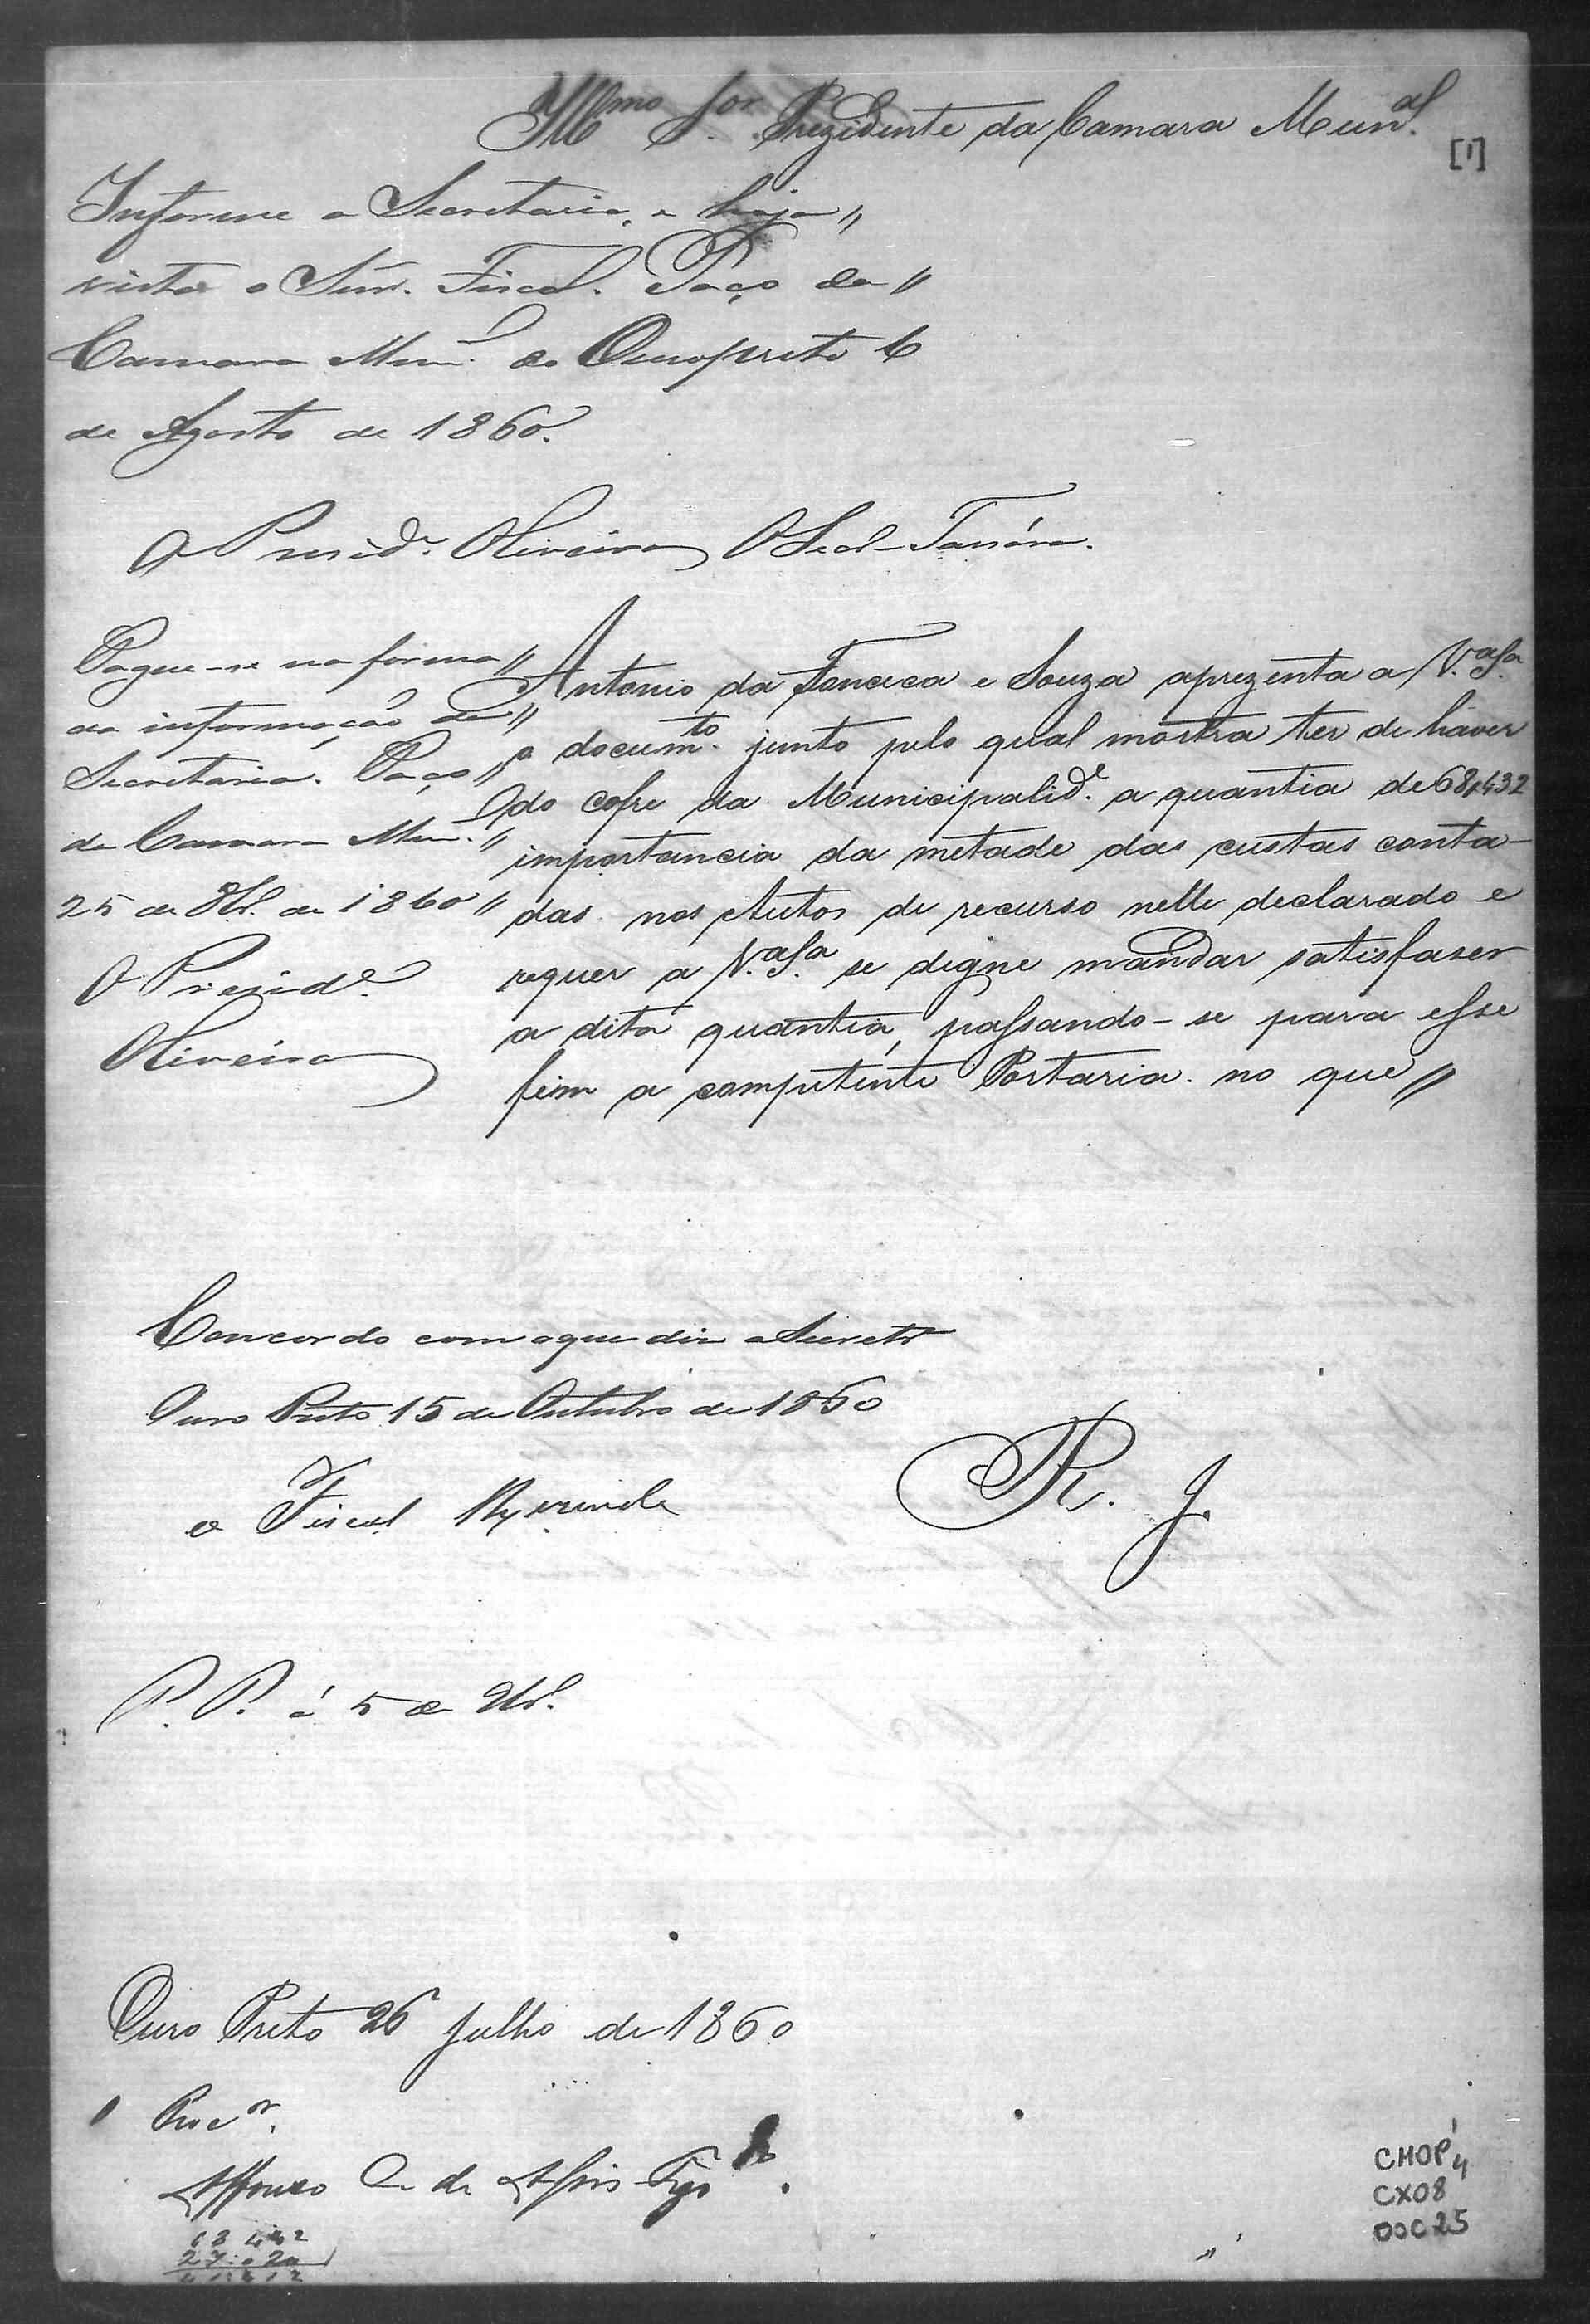 Illmo Sor Prezidente da Camara Munal.
[1]
Informe a Secretaria, e haja
vista o Snr. Fiscal. Paço da
Camara Munl. do Ouropreto 6
de Agosto de 1860.
O Preside. Oliveira O Secr
Pague-se na forma
da informação da
Secretaria. Paço
da Camara Munl.
25 de 8br. de 1860
O Preside.
Oliveira
Antonio da Fonceca e Souza aprezenta a V.a S.a
o documto. junto pelo qual mostra ter de haver
do cofre da Municipalide. a quantia de 68,432
importancia da metade das custas conta-
das nos Autos de recurso nelle declarado e
requer a V.a S.a se digne mandar satisfaser
a dita quantia, passando-se para esse
fim a competente Portaria. no que
Concordo com o que diz a Secret
Ouro Preto 15 de Outubro de 1860
o Fiscal
R. J.
P. P. á 5 de
Ouro Preto 26 Julho de 1860
O Procor.
Affonso C. de Assis Figdo.
68 432
27:020
41:412
CHOP
CX08
DOC25